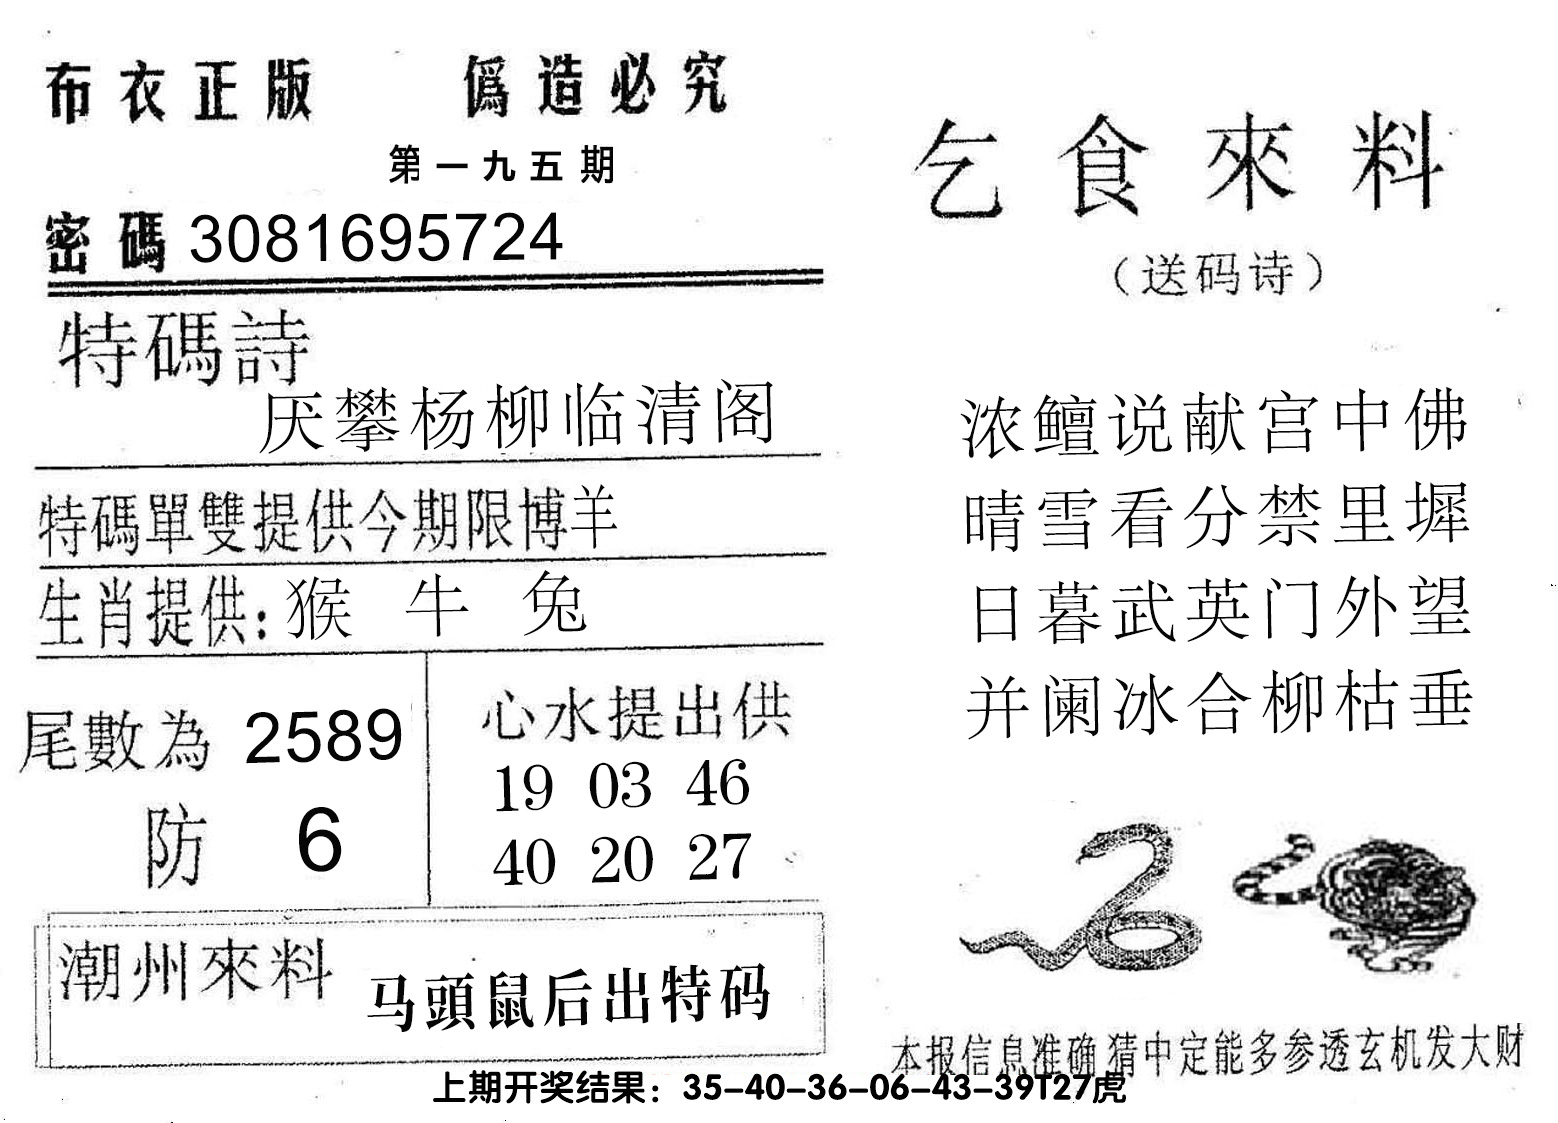 布衣正版 僞造必究
第一九五期
密碼 3081695724
特碼詩
厌攀杨柳临清阁
特碼單雙提供今期限博羊
生肖提供:猴 牛 兔
尾數為 2589
防 6
心水提出供
19 03 46
40 20 27
潮州來料 马頭鼠后出特码
乞食來料
（送码诗）
浓鳣说献宫中佛
晴雪看分禁里墀
日暮武英门外望
并阑冰合柳枯垂
本报信息准确猜中定能多参透玄机发大财
上期开奖结果：35-40-36-06-43-39T27虎